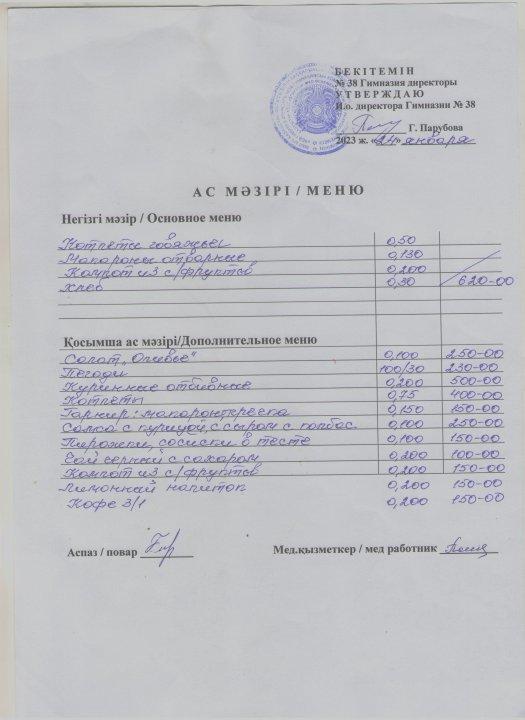 БЕКІТЕМІН
№ 38 Гимназия директоры
УТВЕРЖДАЮ
И.о. директора Гимназии № 38
Г. Парубова
2023 ж. «24» января
АС МӘЗІРІ / МЕНЮ
Негізгі мәзір / Основное меню
Котлеты говяжьеи 0,50
Макароны отварные 0,130
Компот из с/фруктов 0,200
хлеб 0,30 620-00
Қосымша ас мәзірі/Дополнительное меню
Салат „Оливье" 0,100 250-00
Пегоди 100/30 230-00
Куринные отбивные 0,200 500-00
Котлеты 0,75 400-00
Гарнир: макароны,греча 0,150 150-00
Самса с курицой, с сыром с колбас. 0,100 250-00
Пирожки, сосиски в тесте 0,100 150-00
Чай черный с сахаром 0,200 100-00
Компот из с/фруктов 0,200 150-00
Лимонный напиток 0,200 150-00
Кофе 3/1 0,200 150-00
Аспаз / повар Мед.қызметкер / мед работник